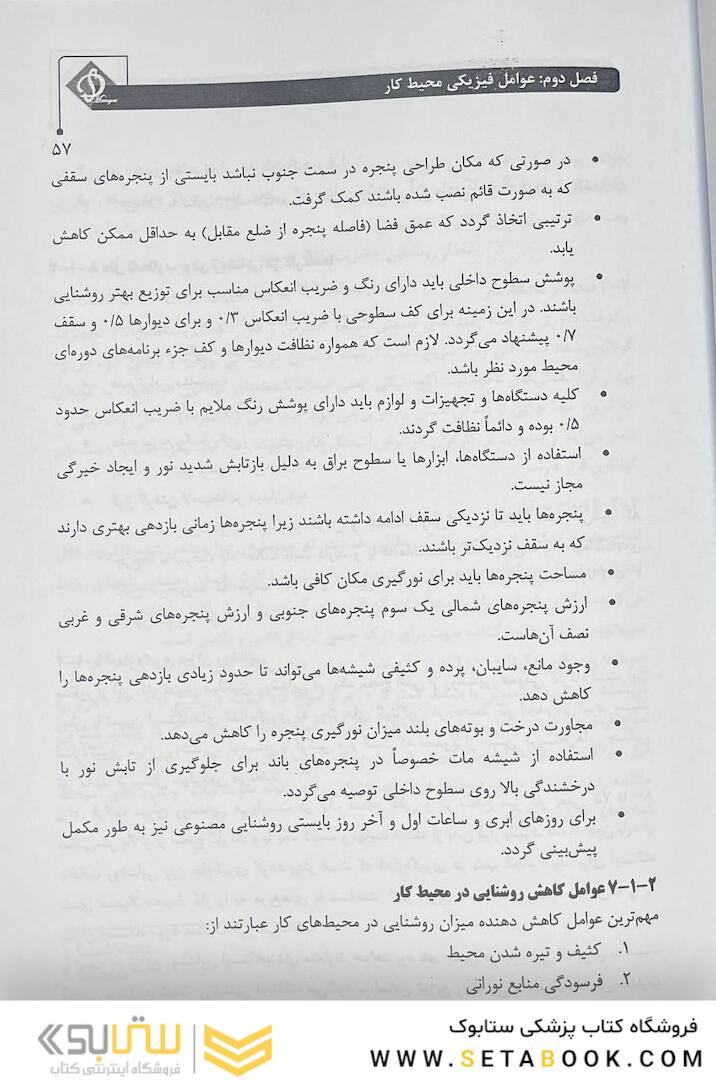 فصل دوم: عوامل فیزیکی محیط کار
۵۷
• در صورتی که مکان طراحی پنجره در سمت جنوب نباشد بایستی از پنجره‌های سقفی
که به صورت قائم نصب شده باشند کمک گرفت.
• ترتیبی اتخاذ گردد که عمق فضا (فاصله پنجره از ضلع مقابل) به حداقل ممکن کاهش
یابد.
• پوشش سطوح داخلی باید دارای رنگ و ضریب انعکاس مناسب برای توزیع بهتر روشنایی
باشند. در این زمینه برای کف سطوحی با ضریب انعکاس ۰/۳ و برای دیوارها ۰/۵ و سقف
۰/۷ پیشنهاد می‌گردد. لازم است که همواره نظافت دیوارها و کف جزء برنامه‌های دوره‌ای
محیط مورد نظر باشد.
• کلیه دستگاه‌ها و تجهیزات و لوازم باید دارای پوشش رنگ ملایم با ضریب انعکاس حدود
۰/۵ بوده و دائماً نظافت گردند.
• استفاده از دستگاه‌ها، ابزارها یا سطوح براق به دلیل بازتابش شدید نور و ایجاد خیرگی
مجاز نیست.
• پنجره‌ها باید تا نزدیکی سقف ادامه داشته باشند زیرا پنجره‌ها زمانی بازدهی بهتری دارند
که به سقف نزدیک‌تر باشند.
• مساحت پنجره‌ها باید برای نورگیری مکان کافی باشد.
• ارزش پنجره‌های شمالی یک سوم پنجره‌های جنوبی و ارزش پنجره‌های شرقی و غربی
نصف آن‌هاست.
• وجود مانع، سایبان، پرده و کثیفی شیشه‌ها می‌تواند تا حدود زیادی بازدهی پنجره‌ها را
کاهش دهد.
• مجاورت درخت و بوته‌های بلند میزان نورگیری پنجره را کاهش می‌دهد.
• استفاده از شیشه مات خصوصاً در پنجره‌های باند برای جلوگیری از تابش نور با
درخشندگی بالا روی سطوح داخلی توصیه می‌گردد.
• برای روزهای ابری و ساعات اول و آخر روز بایستی روشنایی مصنوعی نیز به طور مکمل
پیش‌بینی گردد.
۲-۱-۷ عوامل کاهش روشنایی در محیط کار
مهم‌ترین عوامل کاهش دهنده میزان روشنایی در محیط‌های کار عبارتند از:
۱. کثیف و تیره شدن محیط
۲. فرسودگی منابع نورانی
فروشگاه کتاب پزشکی ستابوک
WWW.SETABOOK.COM
ستابوک
فروشگاه اینترنتی کتاب